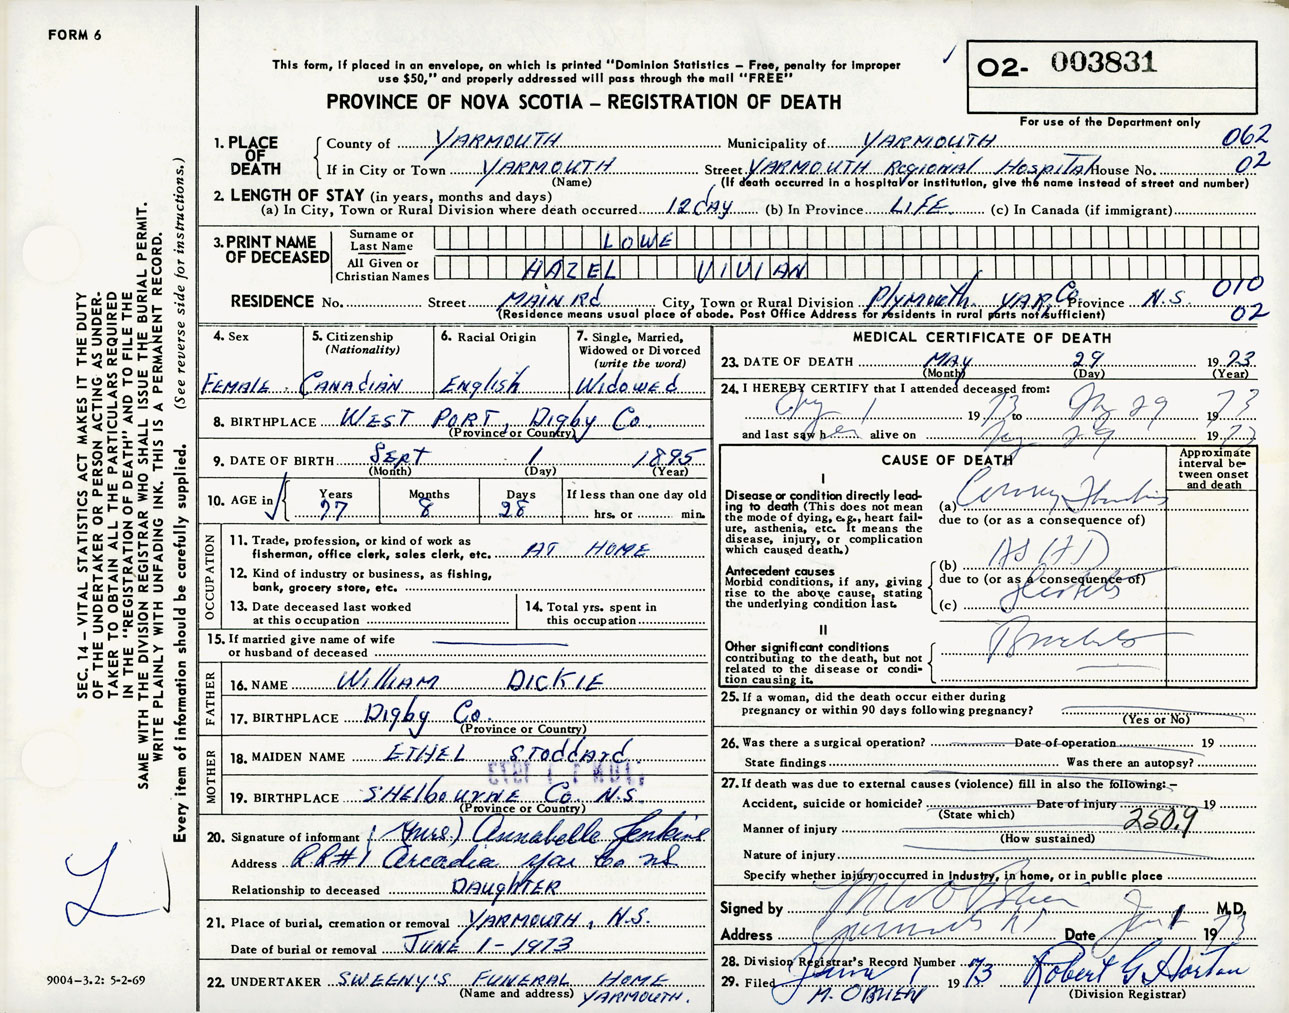 FORM 6
This form, if placed in an envelope, on which is printed "Dominion Statistics – Free, penalty for improper
use $50," and properly addressed will pass through the mail "FREE"
PROVINCE OF NOVA SCOTIA – REGISTRATION OF DEATH
02- 003831
For use of the Department only
SEC. 14 – VITAL STATISTICS ACT MAKES IT THE DUTY
OF THE UNDERTAKER OR PERSON ACTING AS UNDER-
TAKER TO OBTAIN ALL THE PARTICULARS REQUIRED
IN THE "REGISTRATION OF DEATH" AND TO FILE THE
SAME WITH THE DIVISION REGISTRAR WHO SHALL ISSUE THE BURIAL PERMIT.
WRITE PLAINLY WITH UNFADING INK. THIS IS A PERMANENT RECORD.
Every item of information should be carefully supplied. (See reverse side for instructions.)
1. PLACE OF DEATH
County of YARMOUTH Municipality of YARMOUTH 062
If in City or Town YARMOUTH Street YARMOUTH REGIONAL HOSPITAL House No. 02
(Name) (If death occurred in a hospital or institution, give the name instead of street and number)
2. LENGTH OF STAY (in years, months and days)
(a) In City, Town or Rural Division where death occurred 12 day (b) In Province LIFE (c) In Canada (if immigrant)
3. PRINT NAME OF DECEASED
Surname or Last Name LOWE
All Given or Christian Names HAZEL VIVIAN
RESIDENCE No. Street MAIN Rd City, Town or Rural Division Plymouth YAR. Co. Province N.S. 010
(Residence means usual place of abode. Post Office Address for residents in rural parts not sufficient) 02
4. Sex FEMALE
5. Citizenship (Nationality) CANADIAN
6. Racial Origin English
7. Single, Married, Widowed or Divorced (write the word) Widowed
8. BIRTHPLACE WEST PORT, Digby Co.
(Province or Country)
9. DATE OF BIRTH SEPT 1 1895
(Month) (Day) (Year)
10. AGE in Years 77 Months 8 Days 28 If less than one day old hrs. or min.
OCCUPATION
11. Trade, profession or kind of work as
fisherman, office clerk, sales clerk, etc. AT HOME
12. Kind of industry or business, as fishing,
bank, grocery store, etc.
13. Date deceased last worked
at this occupation
14. Total yrs. spent in
this occupation
15. If married give name of wife
or husband of deceased
FATHER
16. NAME William DICKIE
17. BIRTHPLACE Digby Co.
(Province or Country)
MOTHER
18. MAIDEN NAME ETHEL Stoddard
19. BIRTHPLACE SHelbourne Co. N.S.
(Province or Country)
20. Signature of informant (Mrs) Annabelle Jenkins
Address RR#1 Arcadia Yar Co NS
Relationship to deceased DAUGHTER
21. Place of burial, cremation or removal YARMOUTH, N.S.
Date of burial or removal JUNE 1 - 1973
22. UNDERTAKER SWEENY'S FUNERAL HOME
(Name and address) YARMOUTH.
MEDICAL CERTIFICATE OF DEATH
23. DATE OF DEATH MAY 29 1973
(Month) (Day) (Year)
24. I HEREBY CERTIFY that I attended deceased from:
1 1973 to May 29 1973
and last saw her alive on May 29 1973
CAUSE OF DEATH
Approximate interval between onset and death
I
Disease or condition directly lead-
ing to death (This does not mean
the mode of dying, e.g., heart fail-
ure, asthenia, etc. It means the
disease, injury, or complication
which caused death.)
(a) Coronary Thrombosis
due to (or as a consequence of)
Antecedent causes
Morbid conditions, if any, giving
rise to the above cause, stating
the underlying condition last.
(b) ASHD
due to (or as a consequence of)
(c)
II
Other significant conditions
contributing to the death, but not
related to the disease or condi-
tion causing it.
25. If a woman, did the death occur either during
pregnancy or within 90 days following pregnancy?
(Yes or No)
26. Was there a surgical operation? Date of operation 19
State findings Was there an autopsy?
27. If death was due to external causes (violence) fill in also the following:–
Accident, suicide or homicide? Date of injury 19
(State which)
Manner of injury 250.9
(How sustained)
Nature of injury
Specify whether injury occurred in industry, in home, or in public place
Signed by M.D.
Address Date June 1 1973
28. Division Registrar's Record Number
29. Filed June 1 1973 Robert G Horton
M. O'BRIEN (Division Registrar)
9004–3.2: 5-2-69